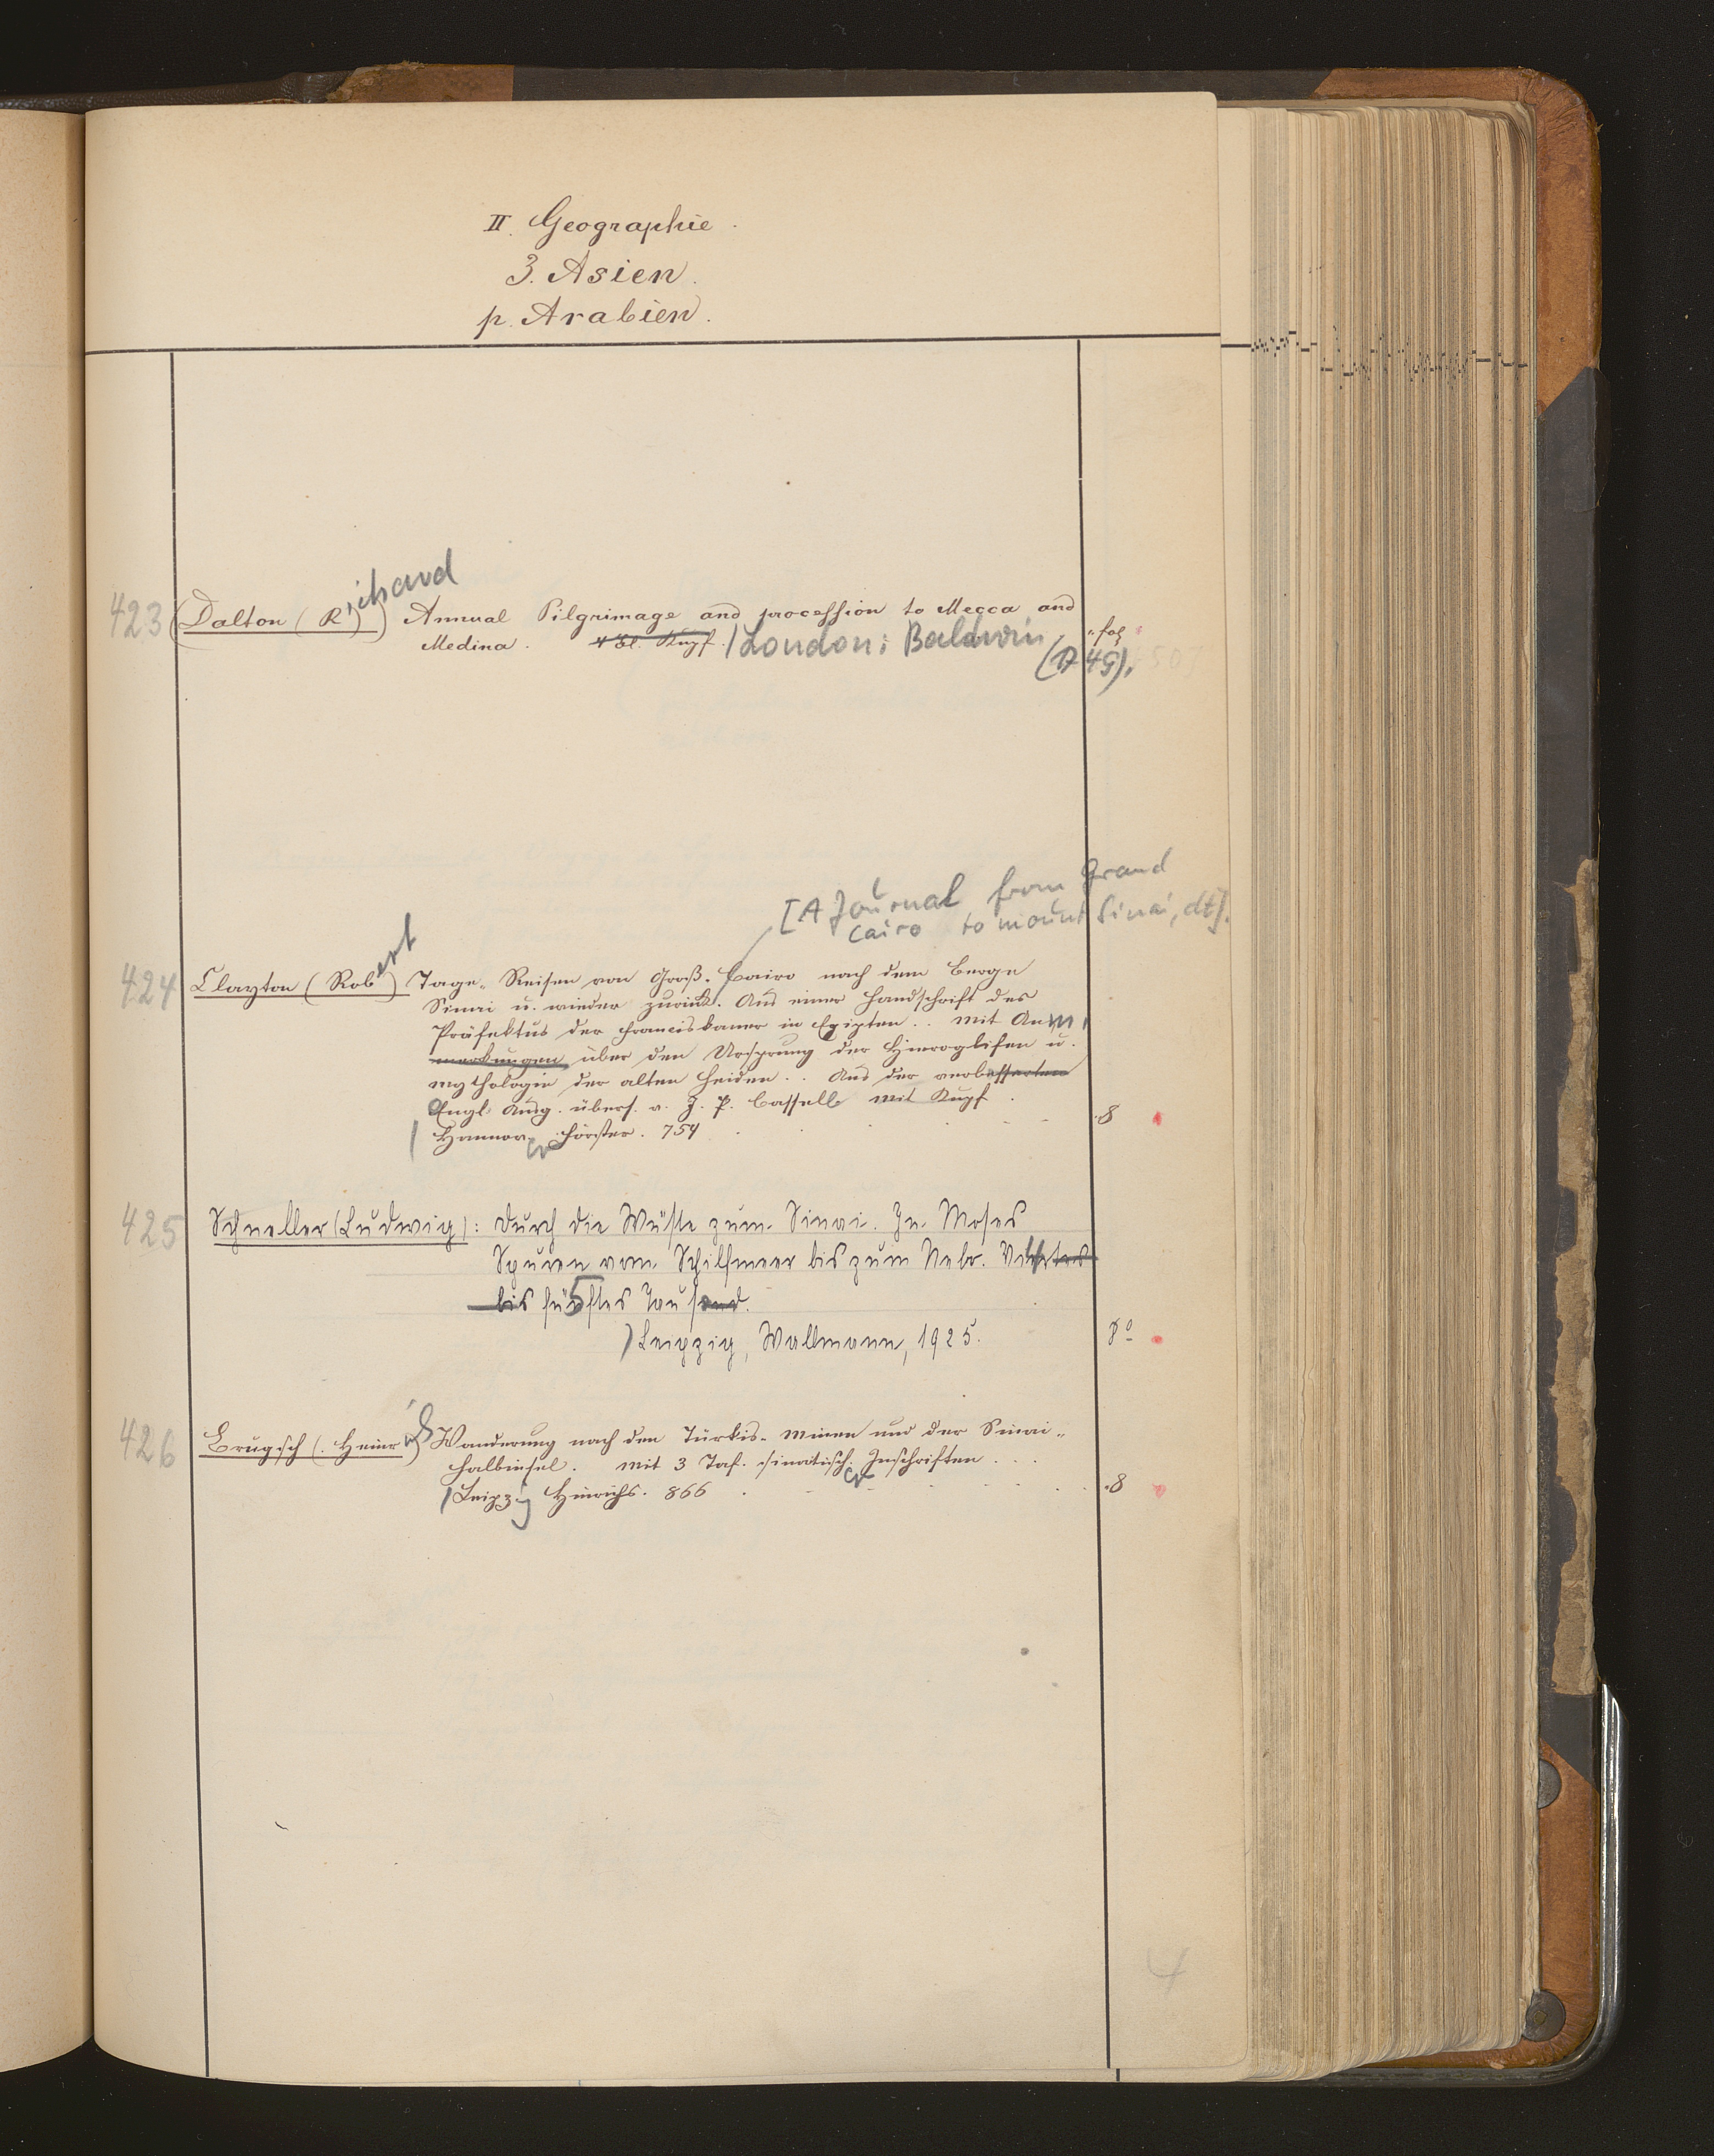 II. Geographie.
3. Asien.
p. Arabien.
423 (Dalton (Richard) Annual Pilgrimage and procession to Mecca and
Medina. 4 Bl. Kupf. / London: Baldwin fol
(17 49).
[A Journal from Grand
Cairo to mount Sinai, dt].
424 Clayton (Robert) Tage-Reisen von Groß-Cairo nach dem Berge
Sinai u. wieder zurück. Aus einer Handschrift des
Präfektus der Franciskaner in Egipten .. mit Anm
merkungen über den Ursprung der Hieroglifen u.
mythologie der alten Heiden .. Aus der verbesserten
Engl. Ausg. übers. v. J. P. Cassell mit Kupf.
/ Hannover Förster. 754 8
425 Schneller (Ludwig): Durch die Wüste zum Sinai. In Moses
Spuren vom Schilfmeer bis zum Nebo. Viertes
bis fünftes Tausend. 5
) Leipzig, Wallmann, 1925. 8°
426 Brugsch (Heinrich) Wanderung nach den Türkis-Minen und der Sinai-
Halbinsel. mit 3 Taf. sinaitisch. Inschriften ...
/ Leipzig Hinrichs. 866 8
4